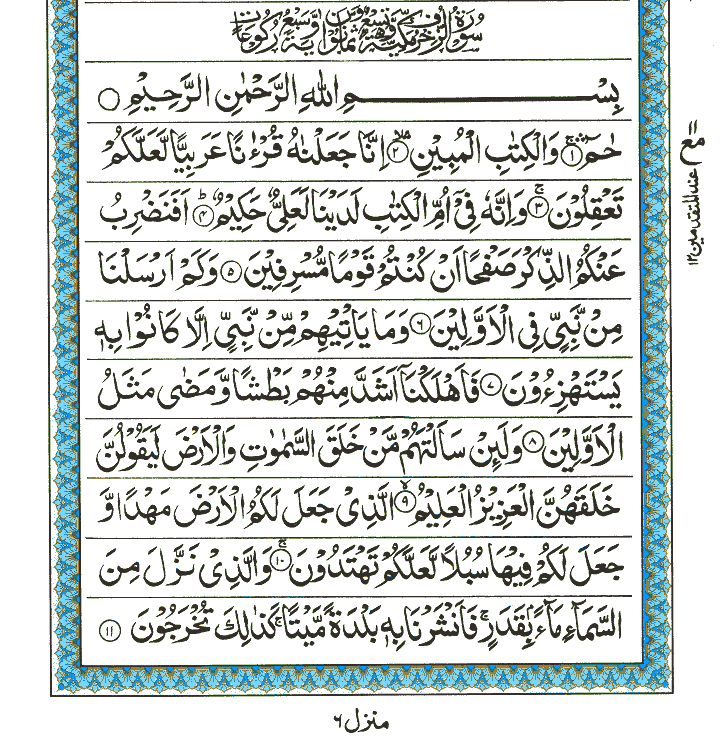 سُوْرَةُ الزُّخْرُفِ مَكِّيَّةٌ وَّهِيَ تِسْعٌ وَّثَمَانُوْنَ اٰيَةً وَّسَبْعُ رُكُوْعَاتٍ
بِسْمِ اللّٰهِ الرَّحْمٰنِ الرَّحِيْمِ ○
حٰمٓ ۚۛ ﴿۱﴾ وَالْكِتٰبِ الْمُبِيْنِ ۙۛ ﴿۲﴾ اِنَّا جَعَلْنٰهُ قُرْءٰنًا عَرَبِيًّا لَّعَلَّكُمْ
تَعْقِلُوْنَ ۚ ﴿۳﴾ وَاِنَّهٗ فِيْٓ اُمِّ الْكِتٰبِ لَدَيْنَا لَعَلِيٌّ حَكِيْمٌ ؕ ﴿۴﴾ اَفَنَضْرِبُ
عَنْكُمُ الذِّكْرَ صَفْحًا اَنْ كُنْتُمْ قَوْمًا مُّسْرِفِيْنَ ﴿۵﴾ وَكَمْ اَرْسَلْنَا
مِنْ نَّبِيٍّ فِي الْاَوَّلِيْنَ ﴿۶﴾ وَمَا يَاْتِيْهِمْ مِّنْ نَّبِيٍّ اِلَّا كَانُوْا بِهٖ
يَسْتَهْزِءُوْنَ ﴿۷﴾ فَاَهْلَكْنَاۤ اَشَدَّ مِنْهُمْ بَطْشًا وَّمَضٰى مَثَلُ
الْاَوَّلِيْنَ ﴿۸﴾ وَلَئِنْ سَاَلْتَهُمْ مَّنْ خَلَقَ السَّمٰوٰتِ وَالْاَرْضَ لَيَقُوْلُنَّ
خَلَقَهُنَّ الْعَزِيْزُ الْعَلِيْمُ ۙ ﴿۹﴾ الَّذِيْ جَعَلَ لَكُمُ الْاَرْضَ مَهْدًا وَّ
جَعَلَ لَكُمْ فِيْهَا سُبُلًا لَّعَلَّكُمْ تَهْتَدُوْنَ ۚ ﴿۱۰﴾ وَالَّذِيْ نَزَّلَ مِنَ
السَّمَآءِ مَآءًۢ بِقَدَرٍ ۚ فَاَنْشَرْنَا بِهٖ بَلْدَةً مَّيْتًا ۚ كَذٰلِكَ تُخْرَجُوْنَ ﴿۱۱﴾
مع
عند المتقدمين ۱۲
منزل ۶